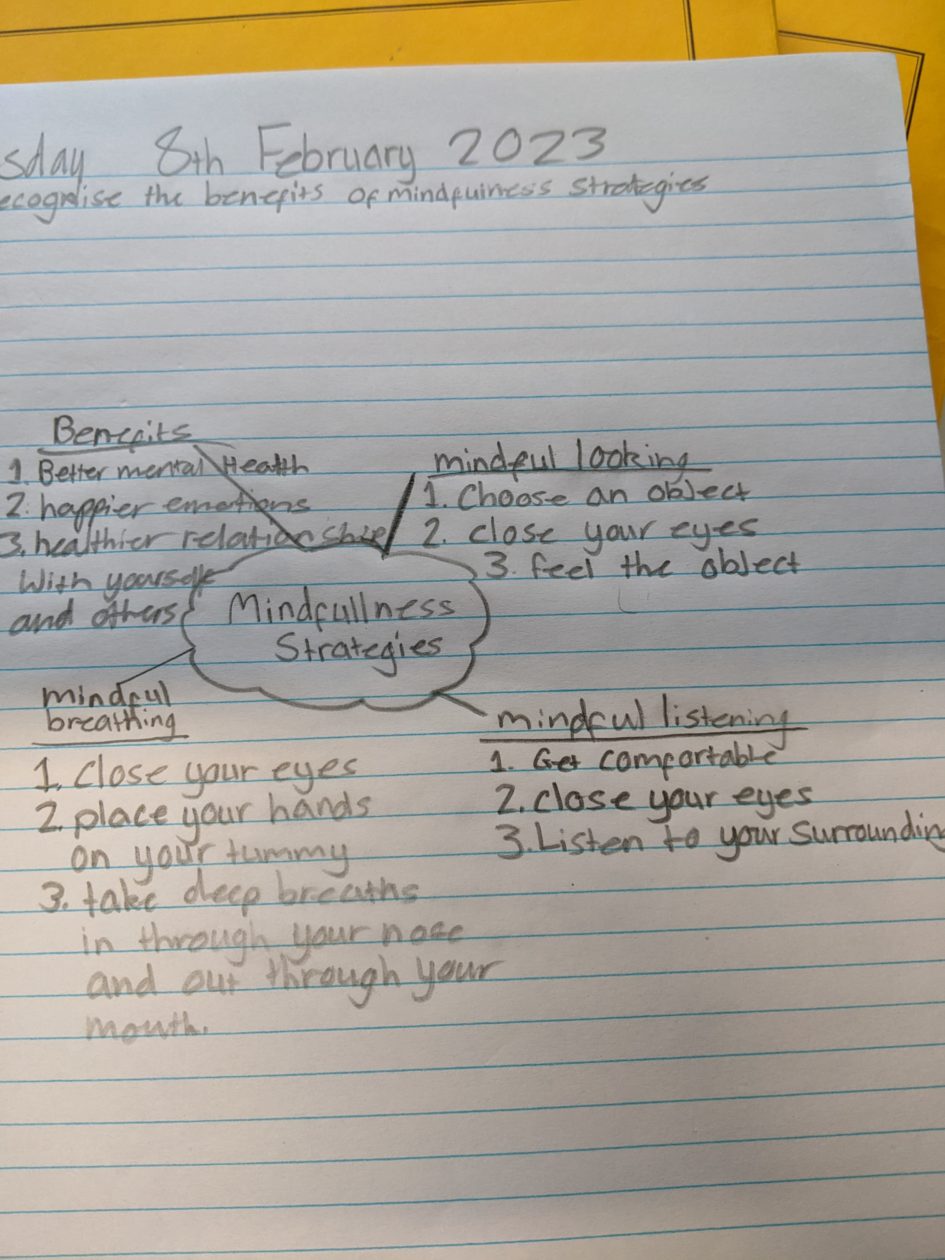 sday 8th February 2023
ecognise the benefits of mindfulness strategies
Benefits
1. Better mental Health
2. happier emotions
3. healthier relationship
With yourself
and others
mindful looking
1. Choose an object
2. close your eyes
3. feel the object
Mindfullness
Strategies
mindful
breathing
1. Close your eyes
2. place your hands
on your tummy
3. take deep breaths
in through your nose
and out through your
mouth.
mindful listening
1. Get comfortable
2. close your eyes
3. Listen to your surrounding